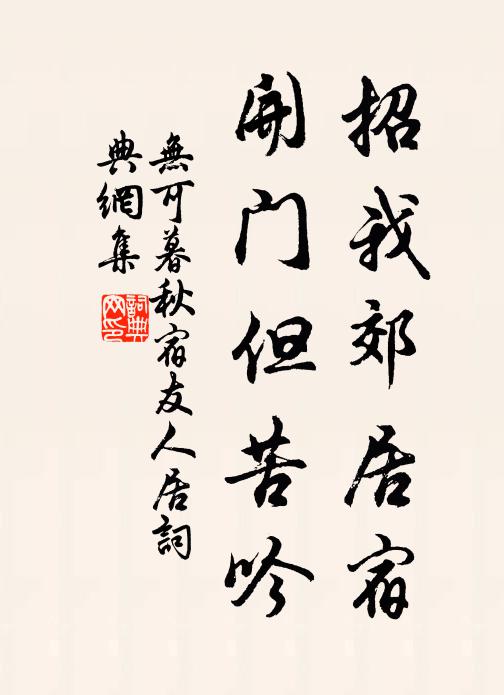 招我郊居宿
開門但苦吟
無可暮秋宿友人居詞
典網集
詞典网印